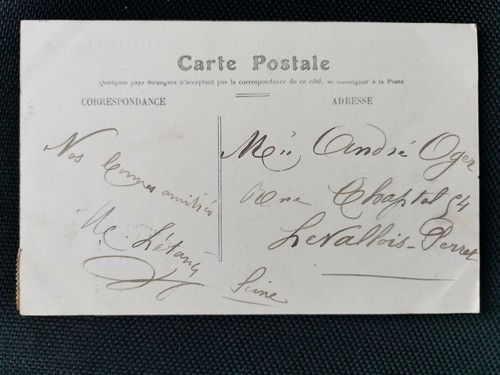 Carte Postale
Quelques pays étrangers n'acceptant pas la correspondance de ce côté, se renseigner à la Poste
CORRESPONDANCE
ADRESSE
Nos bonnes amitiés
Létang
André Oger
Rue Chaptal 54
Levallois-Perret
Seine